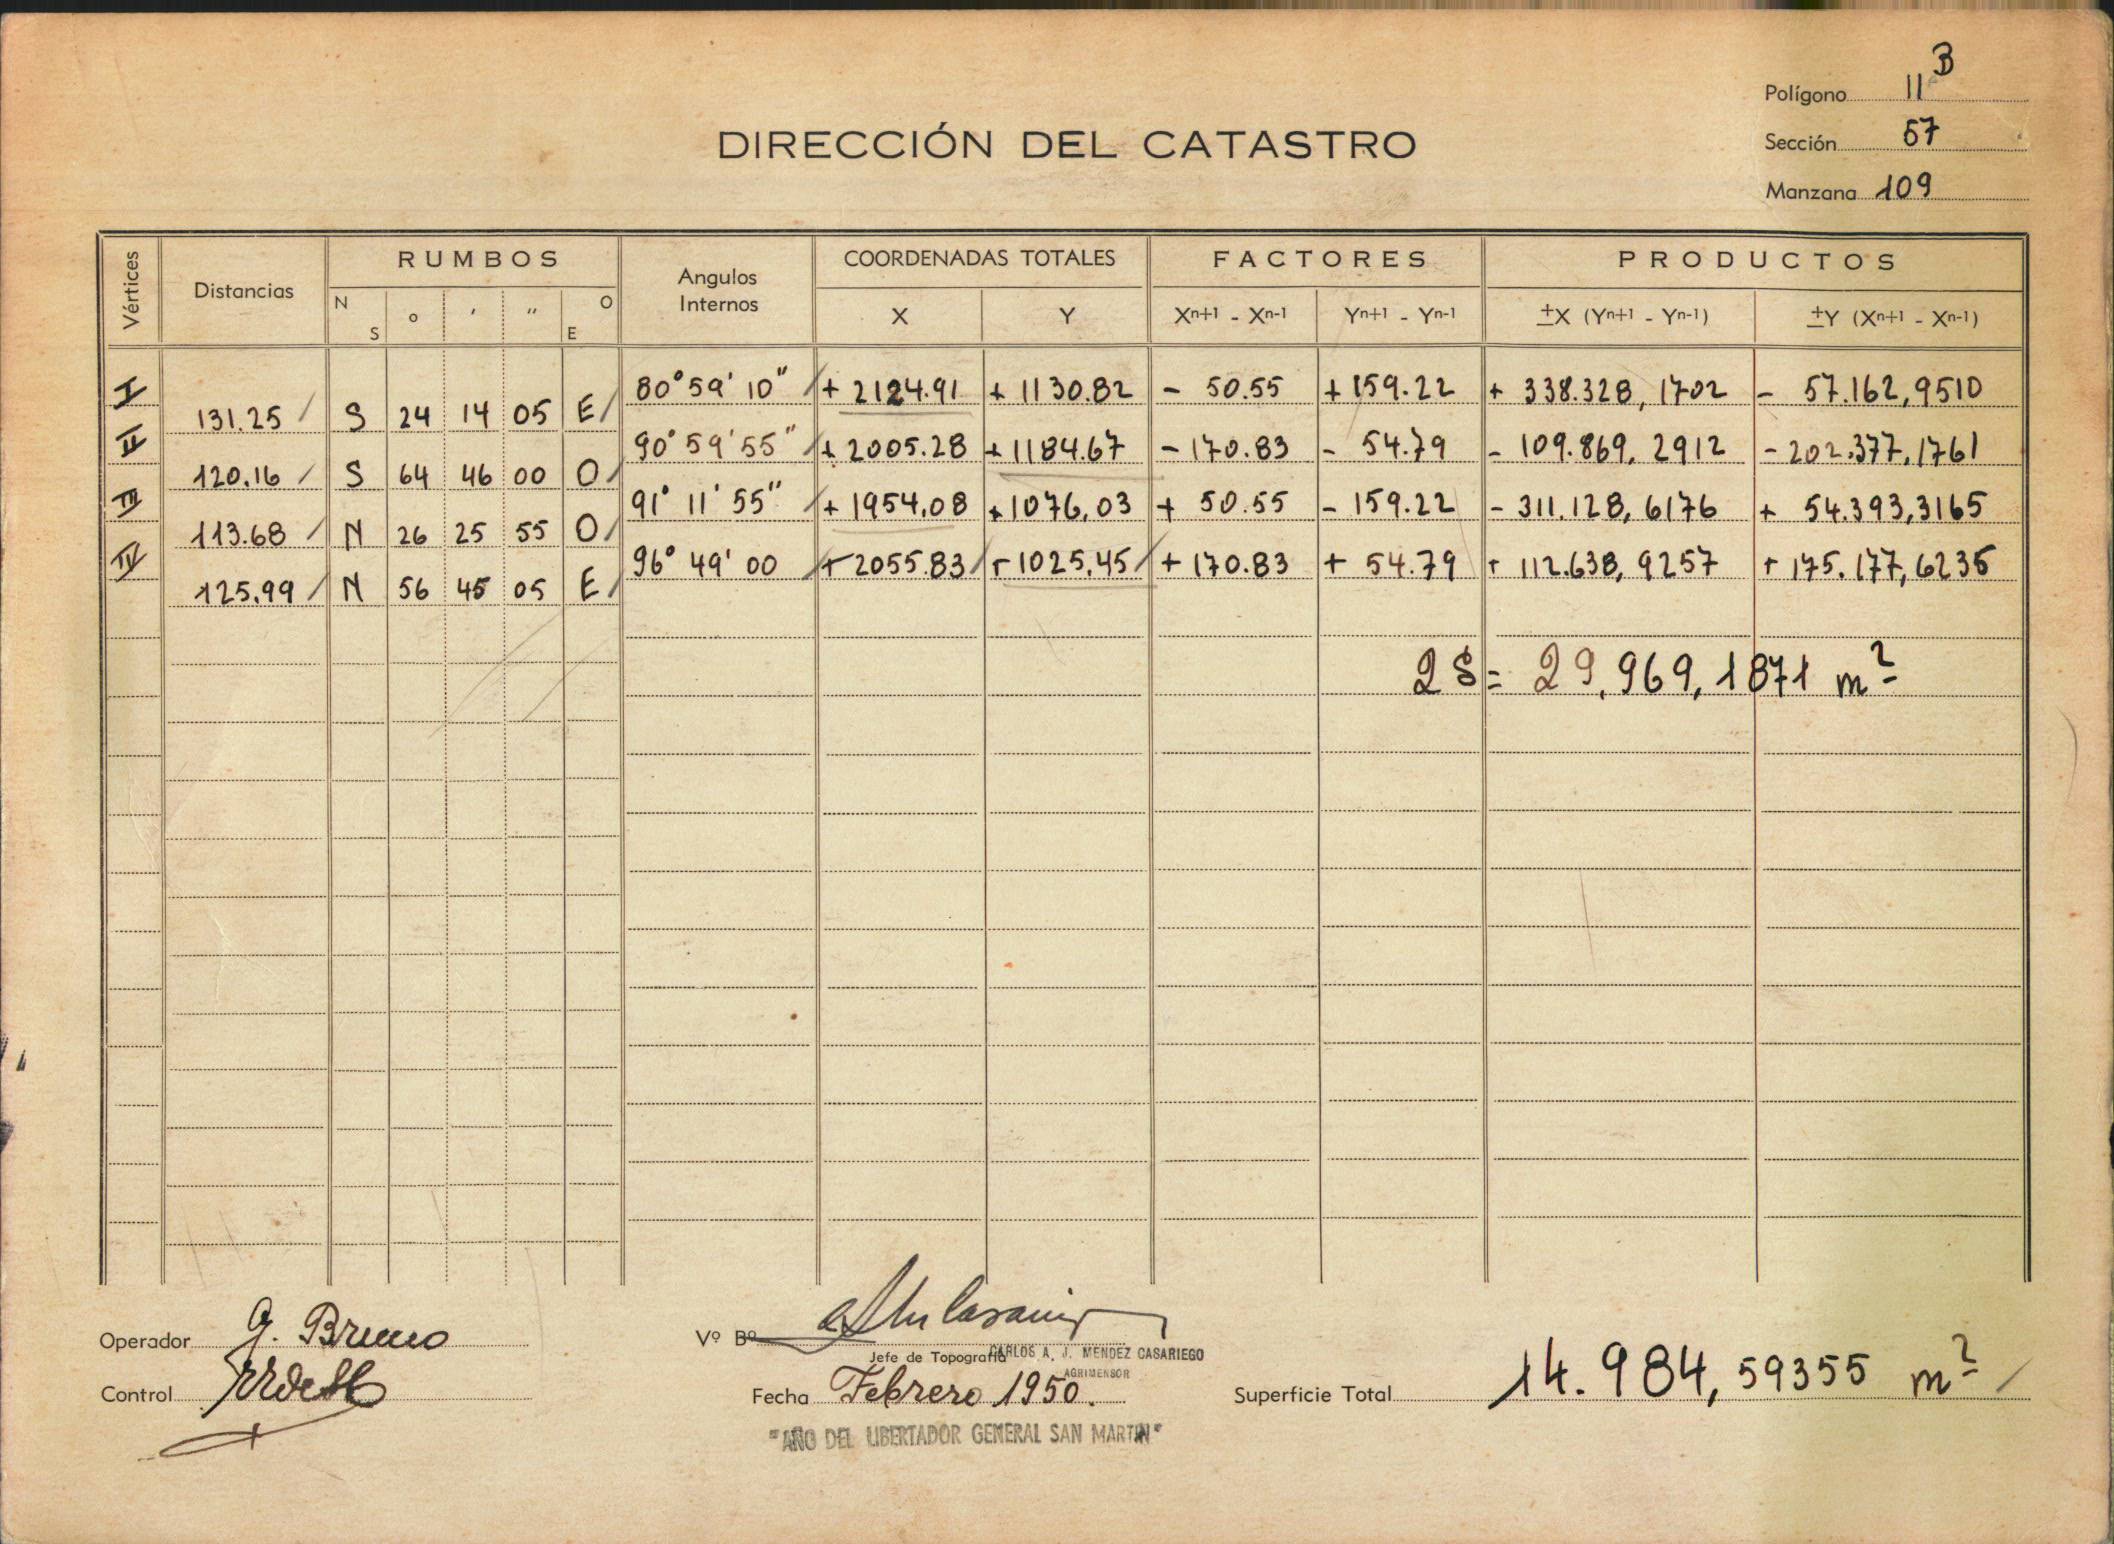 Polígono 11 B
DIRECCIÓN DEL CATASTRO
Sección 57
Manzana 109
Vértices Distancias RUMBOS Angulos Internos COORDENADAS TOTALES FACTORES PRODUCTOS
N S ° ′ ″ O E X Y Xn+1 - Xn-1 Yn+1 - Yn-1 ±X (Yn+1 - Yn-1) ±Y (Xn+1 - Xn-1)
I 80° 59' 10" + 2124.91 + 1130.82 - 50.55 + 159.22 + 338.328, 1702 - 57.162,9510
131.25 S 24 14 05 E
II 90° 59' 55" + 2005.28 + 1184.67 - 170.83 - 54.79 - 109.869, 2912 - 202.377,1761
120.16 S 64 46 00 O
III 91° 11' 55" + 1954,08 + 1076,03 + 50.55 - 159.22 - 311.128, 6176 + 54.393,3165
113.68 N 26 25 55 O
IV 96° 49' 00 + 2055.83 + 1025,45 + 170.83 + 54.79 + 112.638, 9257 + 175.177, 6235
125.99 N 56 45 05 E
2 S = 29.969,1871 m²
Operador G. Bruno
Vº Bº
Jefe de Topografía CARLOS A. J. MENDEZ CASARIEGO
AGRIMENSOR
Control
Fecha Febrero 1950.
Superficie Total 14.984, 59355 m²
"AÑO DEL LIBERTADOR GENERAL SAN MARTIN"